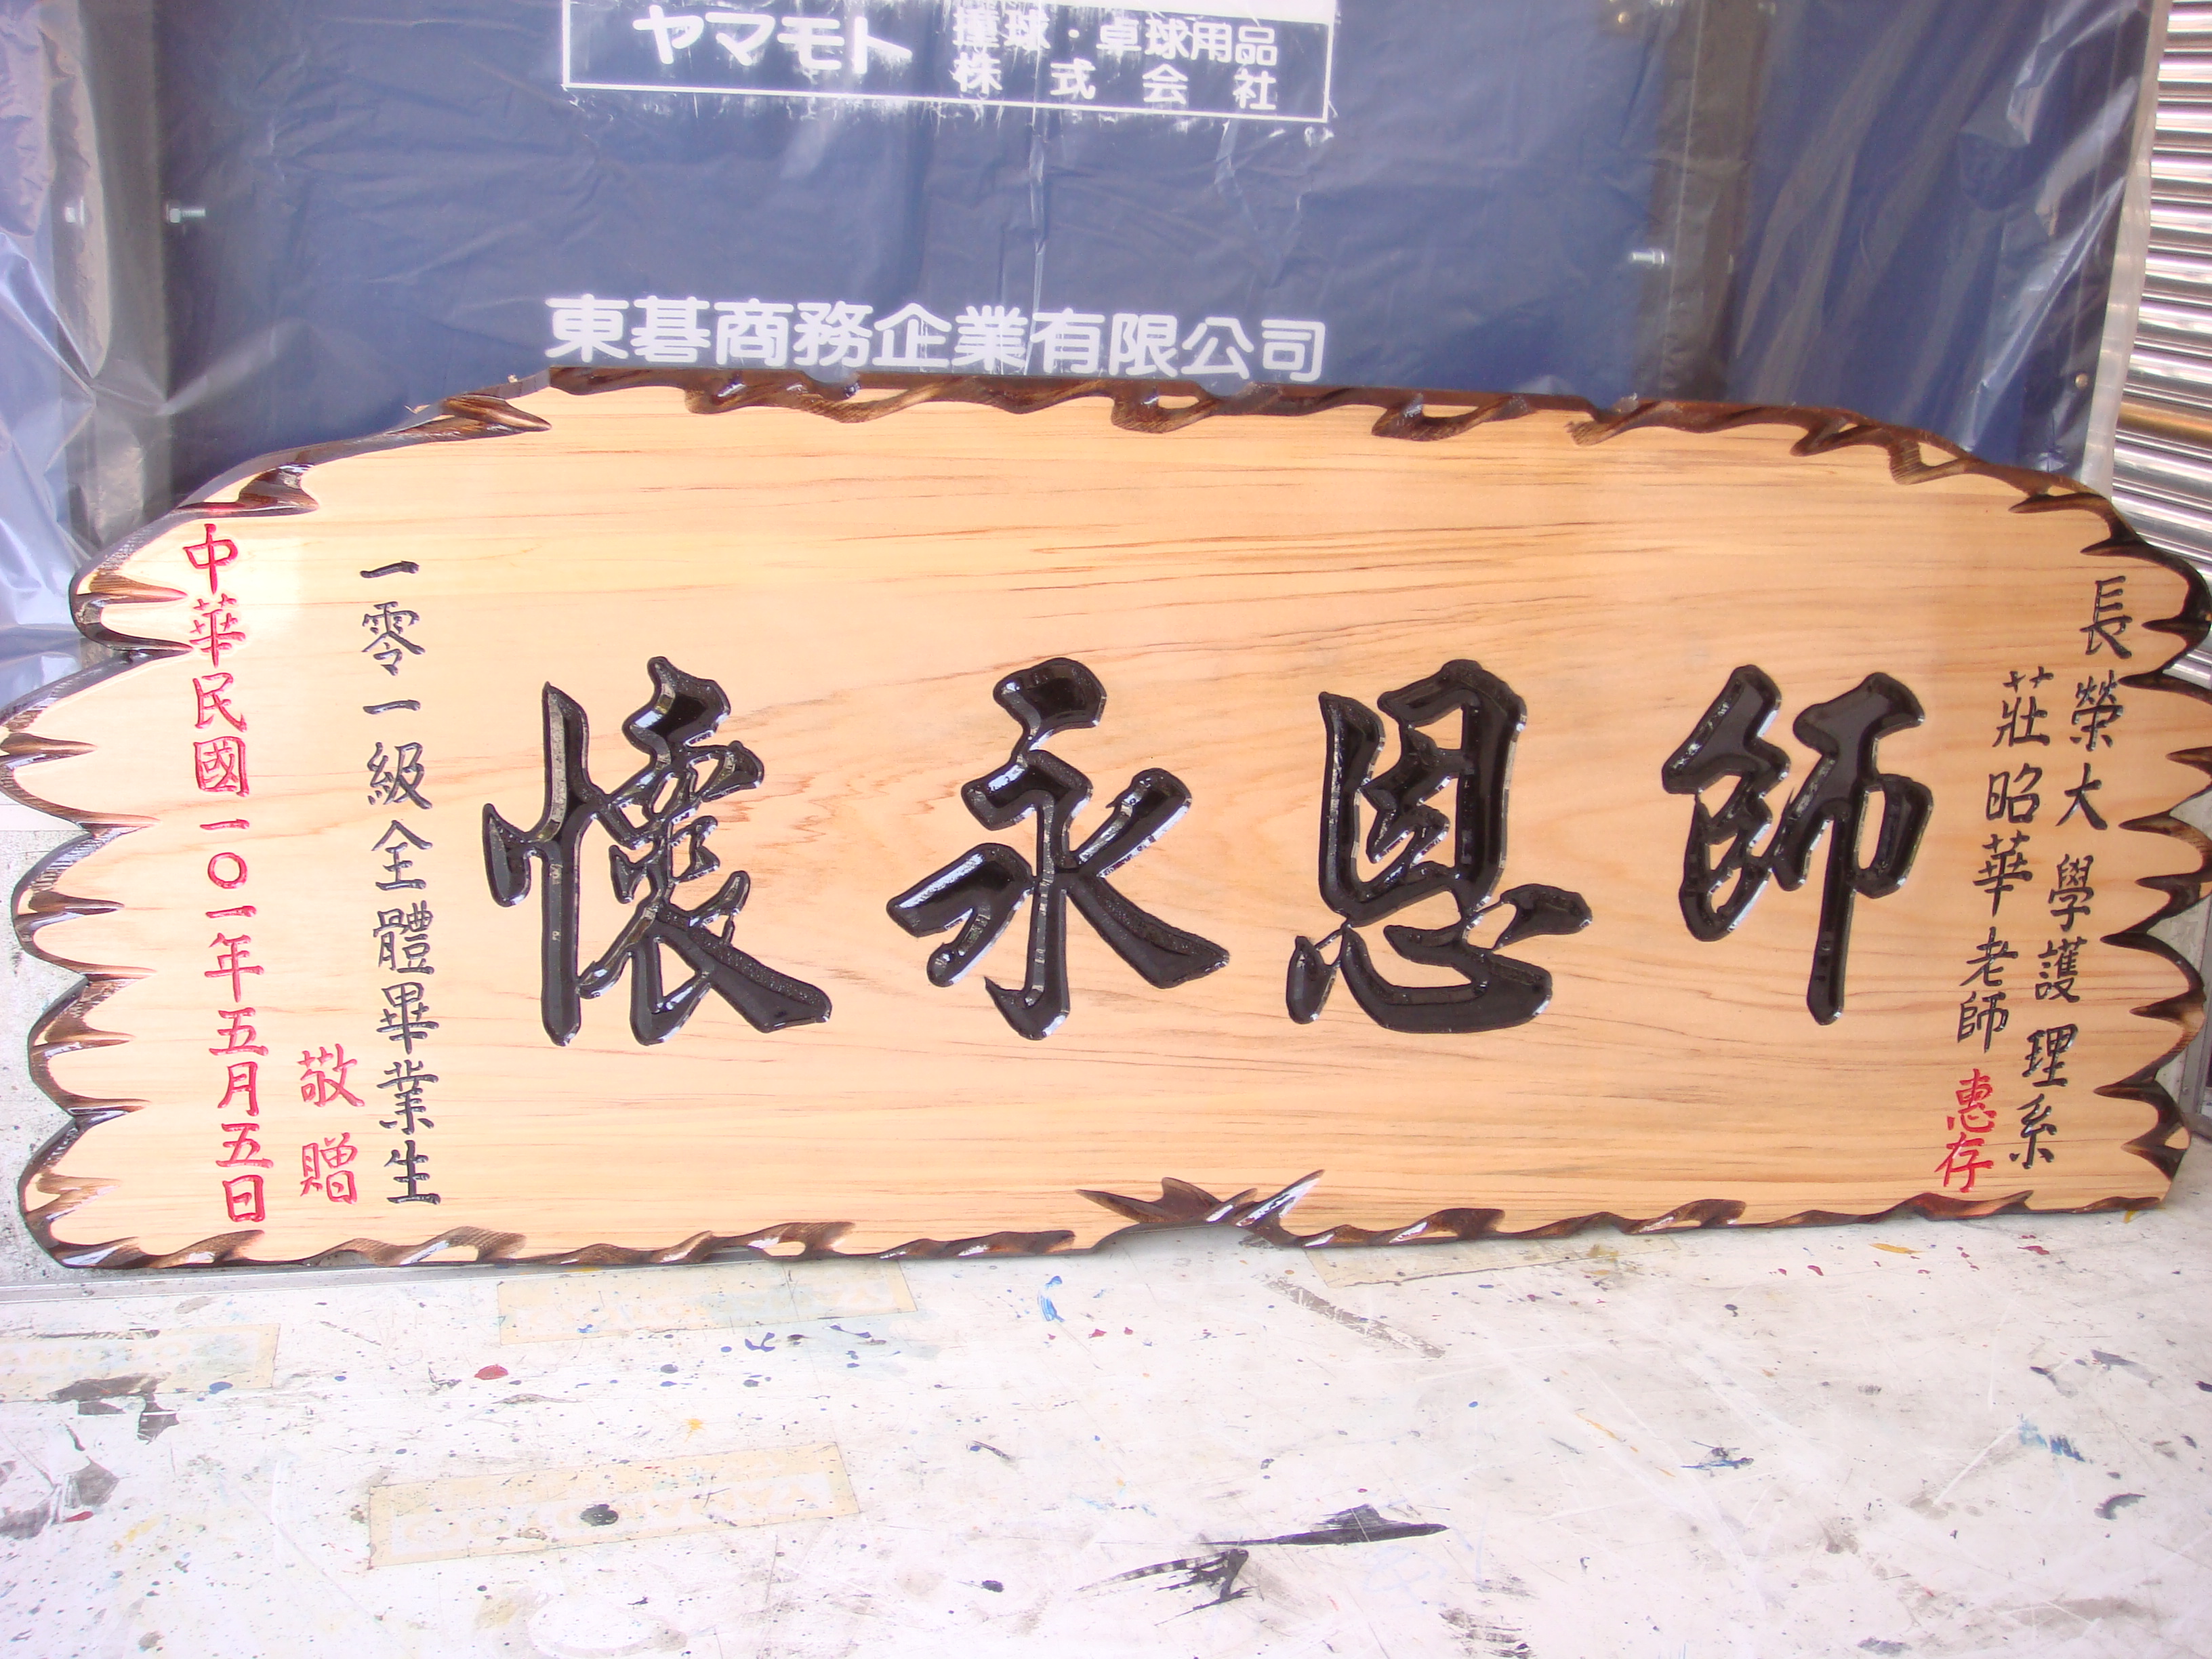 ヤマモト 撞球・卓球用品
株式会社
東碁商務企業有限公司
長榮大學護理系
莊昭華老師 惠存
師恩永懷
一零一級全體畢業生
敬贈
中華民國一〇一年五月五日